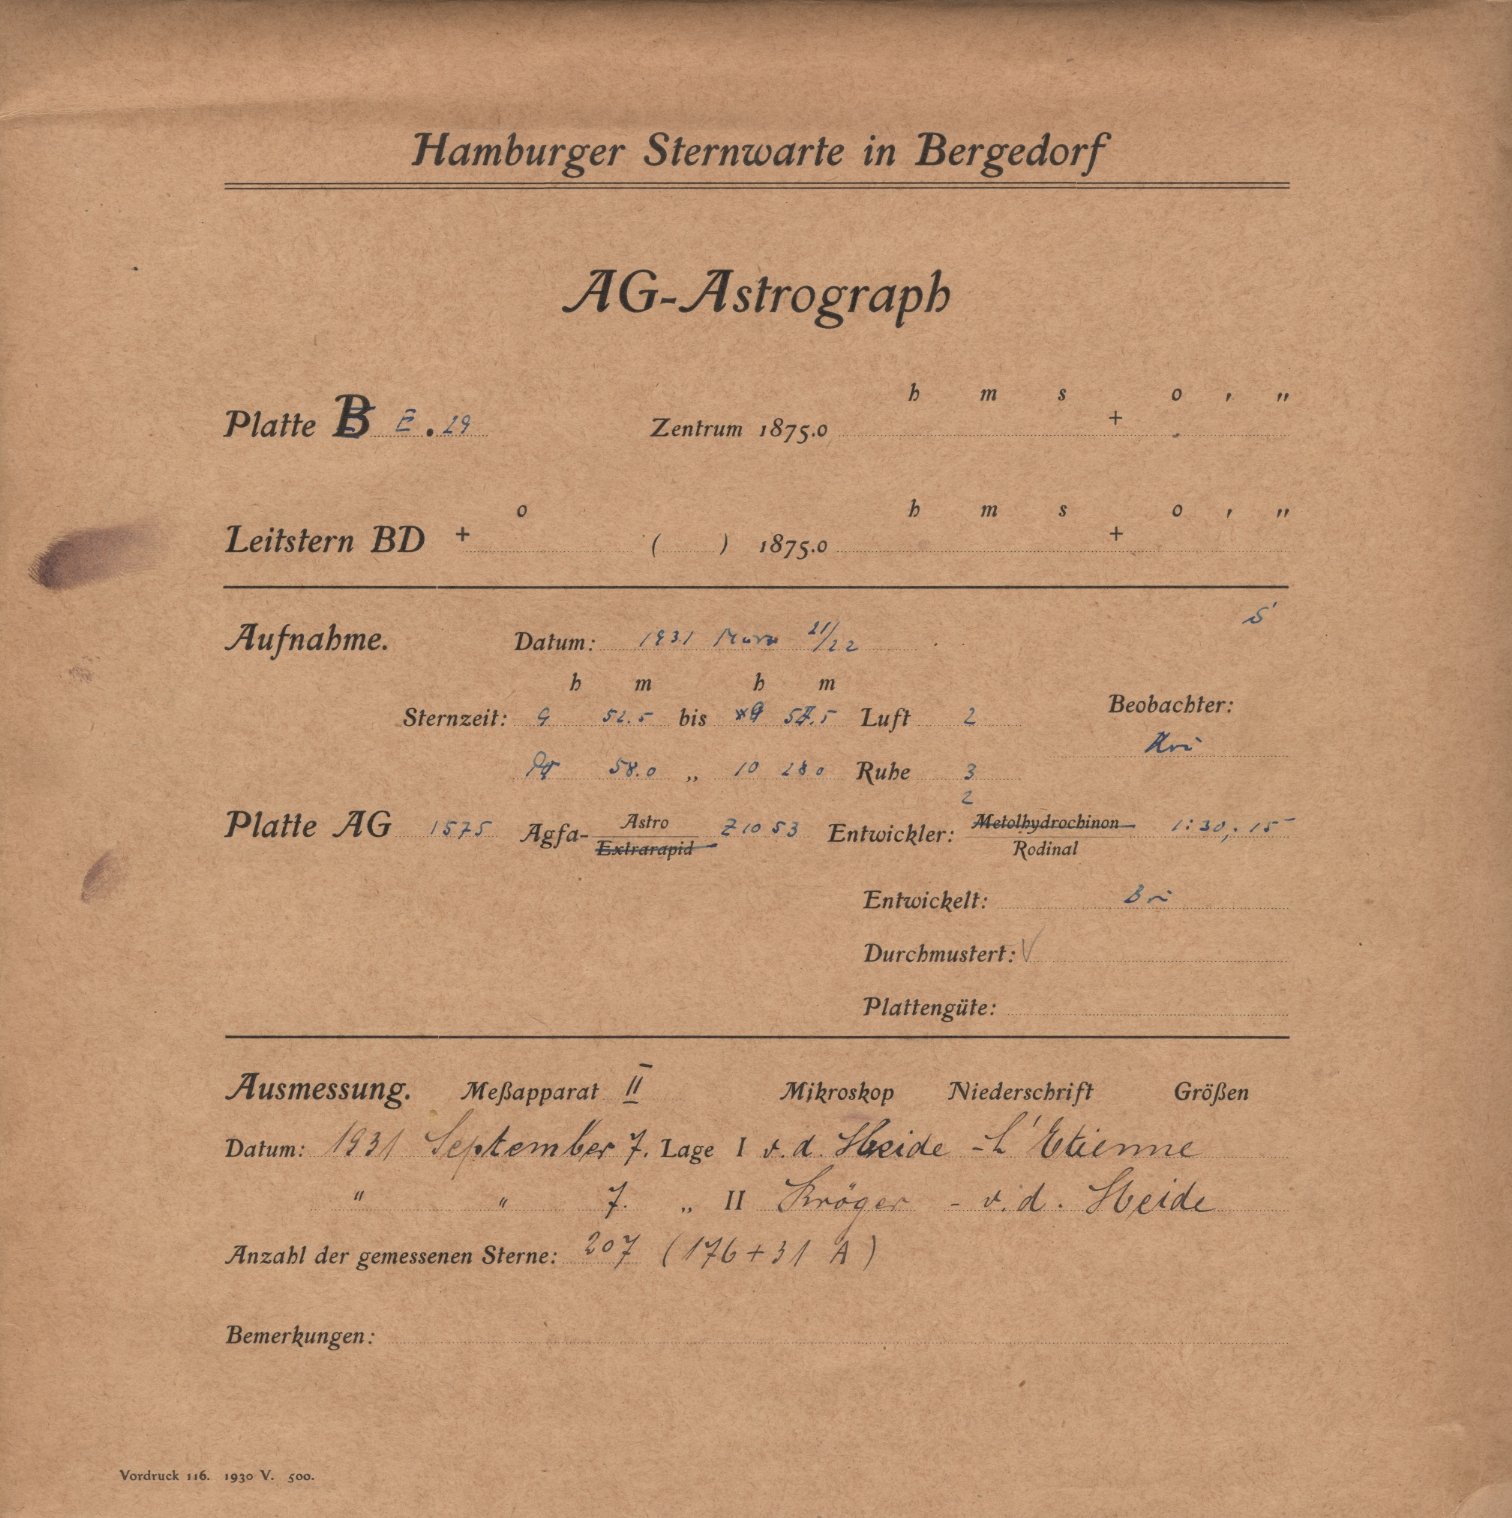 Hamburger Sternwarte in Bergedorf
AG-Astrograph
h m s o ′ ″
Platte B E . 29 Zentrum 1875.0 +
o h m s o ′ ″
Leitstern BD + ( ) 1875.0 +
S
Aufnahme. Datum: 1931 März 21/22
h m h m
Sternzeit: 9 52.5 bis 9 57.5 Luft 2 Beobachter:
58.0 „ 10 28 0 Ruhe 3
2
Platte AG 1575 Agfa- Astro Extrarapid Z 10 53 Entwickler: Metolhydrochinon Rodinal 1:30, 15
Entwickelt:
Durchmustert: √
Plattengüte:
Ausmessung. Meßapparat II Mikroskop Niederschrift Größen
Datum: 1931 September 7. Lage I v. d. Heide - L'Etienne
" " 7. „ II Kröger - v. d. Heide
Anzahl der gemessenen Sterne: 207 (176+31 A)
Bemerkungen:
Vordruck 116. 1930 V. 500.